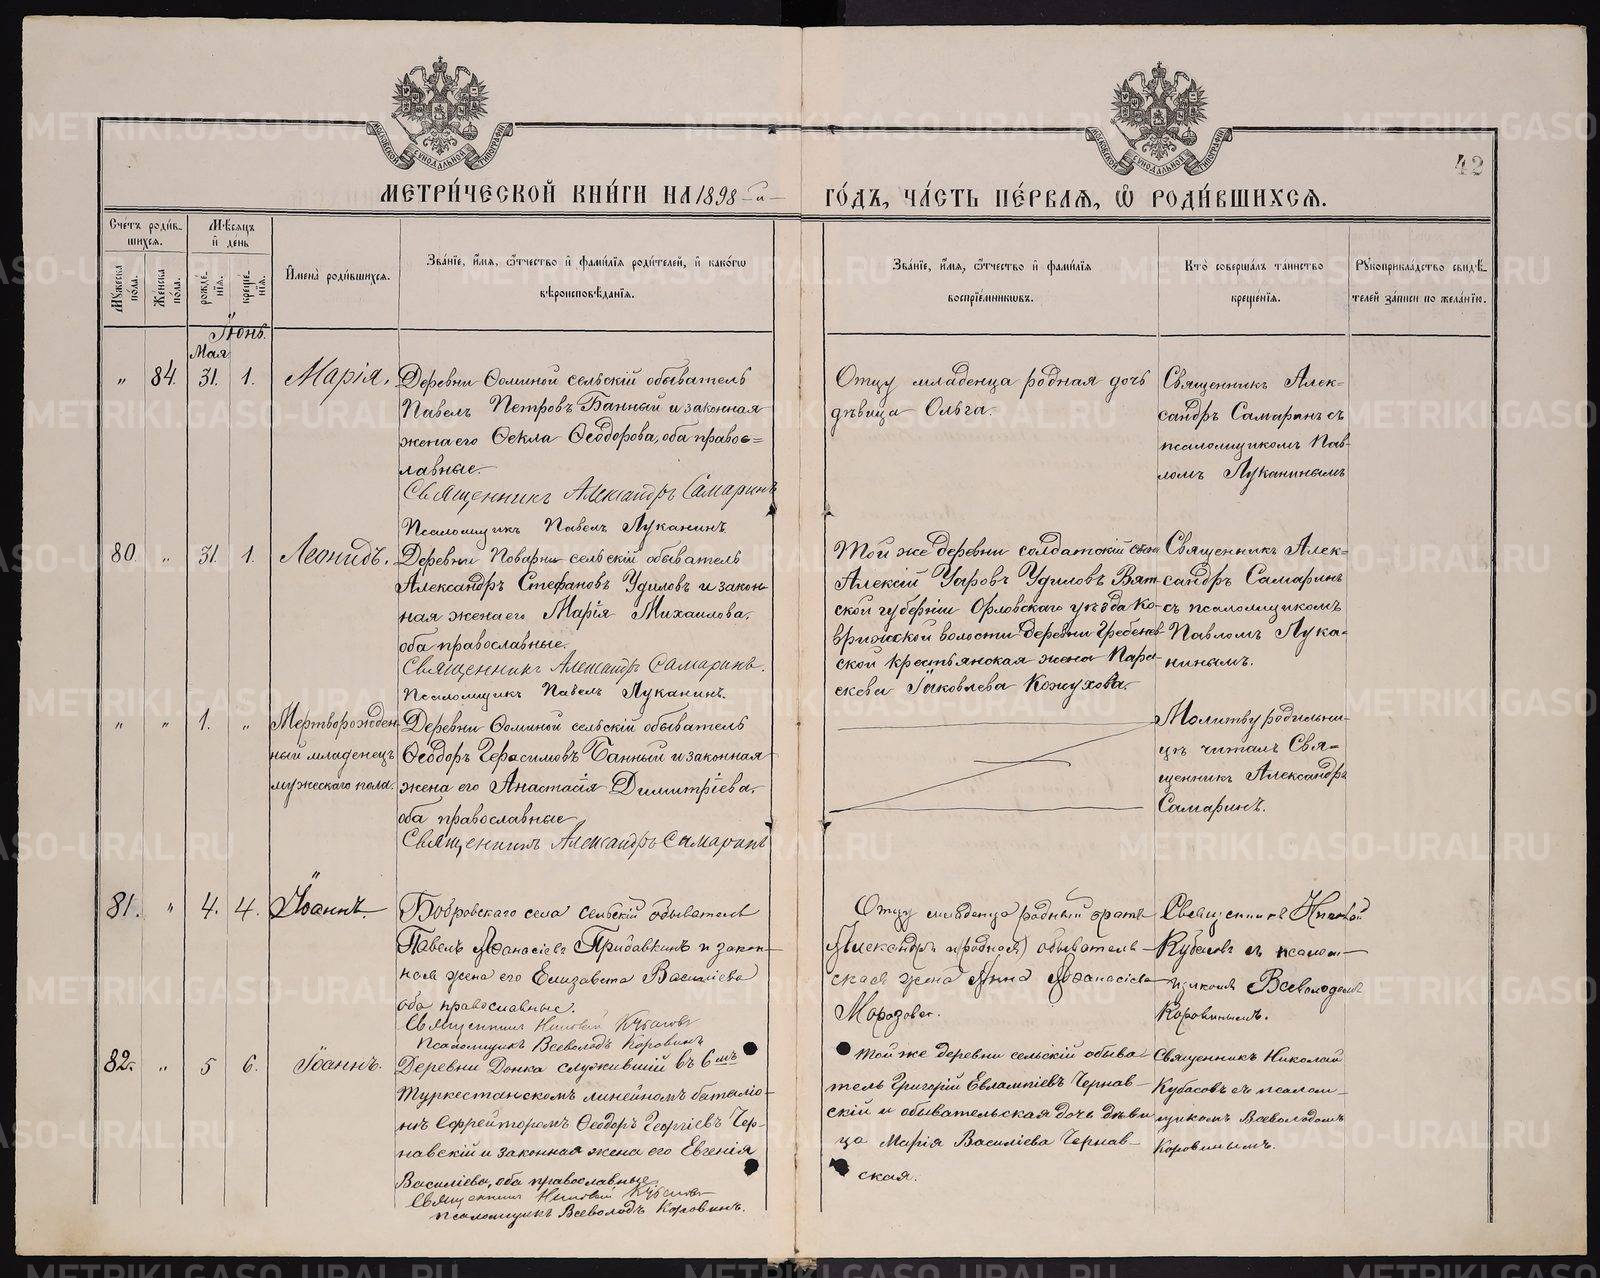 42
МЕТРИ́ЧЕСКОЙ КНИ́ГИ НА 1898 й
ГО́ДЪ, ЧА́СТЬ ПЕ́РВАѦ, Ѽ РОДИ́ВШИХСѦ.
Сче́тъ роди́в-
шихсѧ.
Мѣ́сѧцъ
и҆ день
Мꙋ́жеска
по́ла.
Же́нска
по́ла.
рожде́-
нїѧ.
креще́-
нїѧ.
И҆мена̀ роди́вшихсѧ.
Зва́нїе, и҆́мѧ, ѻ҆́тчество и҆ фами́лїѧ роди́телей, и҆ како́гѡ
вѣроисповѣ́данїѧ.
Зва́нїе, и҆́мѧ, ѻ҆́тчество и҆ фами́лїѧ
воспрїе́мникѡвъ.
Кто̀ соверша́лъ та́инство
креще́нїѧ.
Рꙋкоприкла́дство свидѣ́-
телей за́писи по жела́нїю.
Іюнь.
Мая
„ 84. 31. 1. Марія.
Деревни Ѳоминой сельскій обыватель
Павелъ Петровъ Банный и законная
жена его Ѳекла Ѳеодорова, оба правос=
лавные.
Священникъ Александръ Самаринъ
Псаломщикъ Павелъ Луканинъ.
Отцу младенца родная дочь
дѣвица Ольга.
Священникъ Алек-
сандръ Самаринъ съ
псаломщикомъ Пав-
ломъ Луканинымъ
80. „ 31. 1. Леонидъ.
Деревни Поварни сельскій обыватель
Александръ Стефановъ Удиловъ и закон-
ная жена его Марія Михаилова.
оба православные.
Священникъ Александръ Самаринъ.
Псаломщикъ Павелъ Луканинъ.
Той же деревни солдатскій сынъ
Алексій Уаровъ Удиловъ Вят-
ской губерніи Орловскаго уѣзда Ко-
врижской волости деревни Гребенев-
ской крестьянская жена Пара-
скева Іаковлева Кожухова.
Священникъ Алек-
сандръ Самаринъ
съ псаломщикомъ
Павломъ Лука-
нинымъ.
„ „ 1. „ Мертворожден-
ный младенецъ
мужескаго пола.
Деревни Ѳоминой сельскій обыватель
Ѳеодоръ Герасимовъ Банный и законная
жена его Анастасія Димитріева.
оба православные
Священникъ Александръ Самаринъ
Молитву родильни-
цѣ читалъ Свя-
щенникъ Александръ
Самаринъ.
81. „ 4. 4. Іоаннъ.
Бобровскаго села сельскій обыватель
Павелъ Аѳанасіевъ Придавкинъ и закон-
ная жена его Елизавета Василіева
оба православные.
Священникъ Николай Кубасовъ
Псаломщикъ Всеволодъ Коровинъ
Отцу младенца родный братъ
Александръ и (родная) обыватель-
ская жена Анна Аѳанасіева
Морозова.
Священникъ Николай
Кубасовъ съ псалом-
щикомъ Всеволодомъ
Коровинымъ.
82. „ 5 6. Іоаннъ.
Деревни Донка служившій въ 6мъ
Туркестанскомъ линейномъ баталіо-
нѣ Ефрейторомъ Ѳеодоръ Георгіевъ Чер-
навскій и законная жена его Евгенія
Василіева, оба православные
Священникъ Николай Кубасовъ
псаломщикъ Всеволодъ Коровинъ.
той же деревни сельскій обыва
тель Григорій Евлампіевъ Чернав-
скій и обывательская дочь дѣви
ца Марія Василіева Чернав-
ская.
Священникъ Николай
Кубасовъ съ псалом-
щикомъ Всеволодомъ
Коровинымъ.